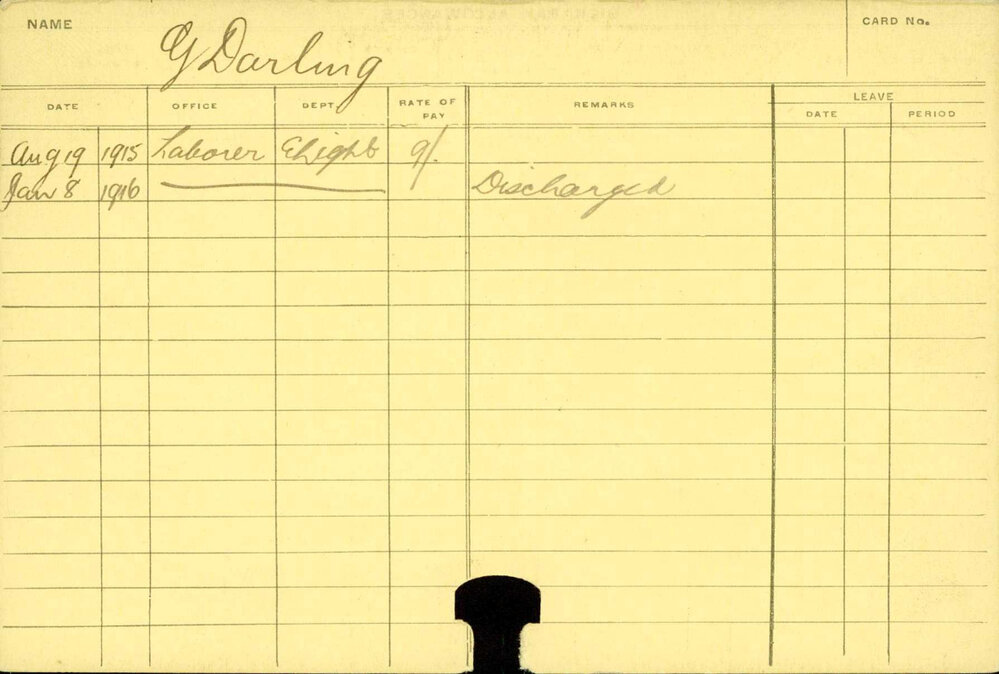 NAME
G Darling
CARD No.
DATE OFFICE DEPT. RATE OF PAY REMARKS LEAVE
DATE PERIOD
Aug 19 1915 Laborer ELight 9/.
Jan 8 1916 Discharged